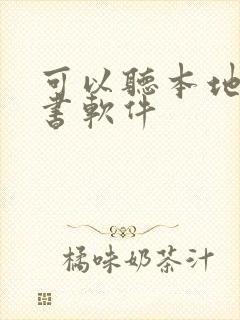 可以聽本地
書軟件
橘味奶茶汁